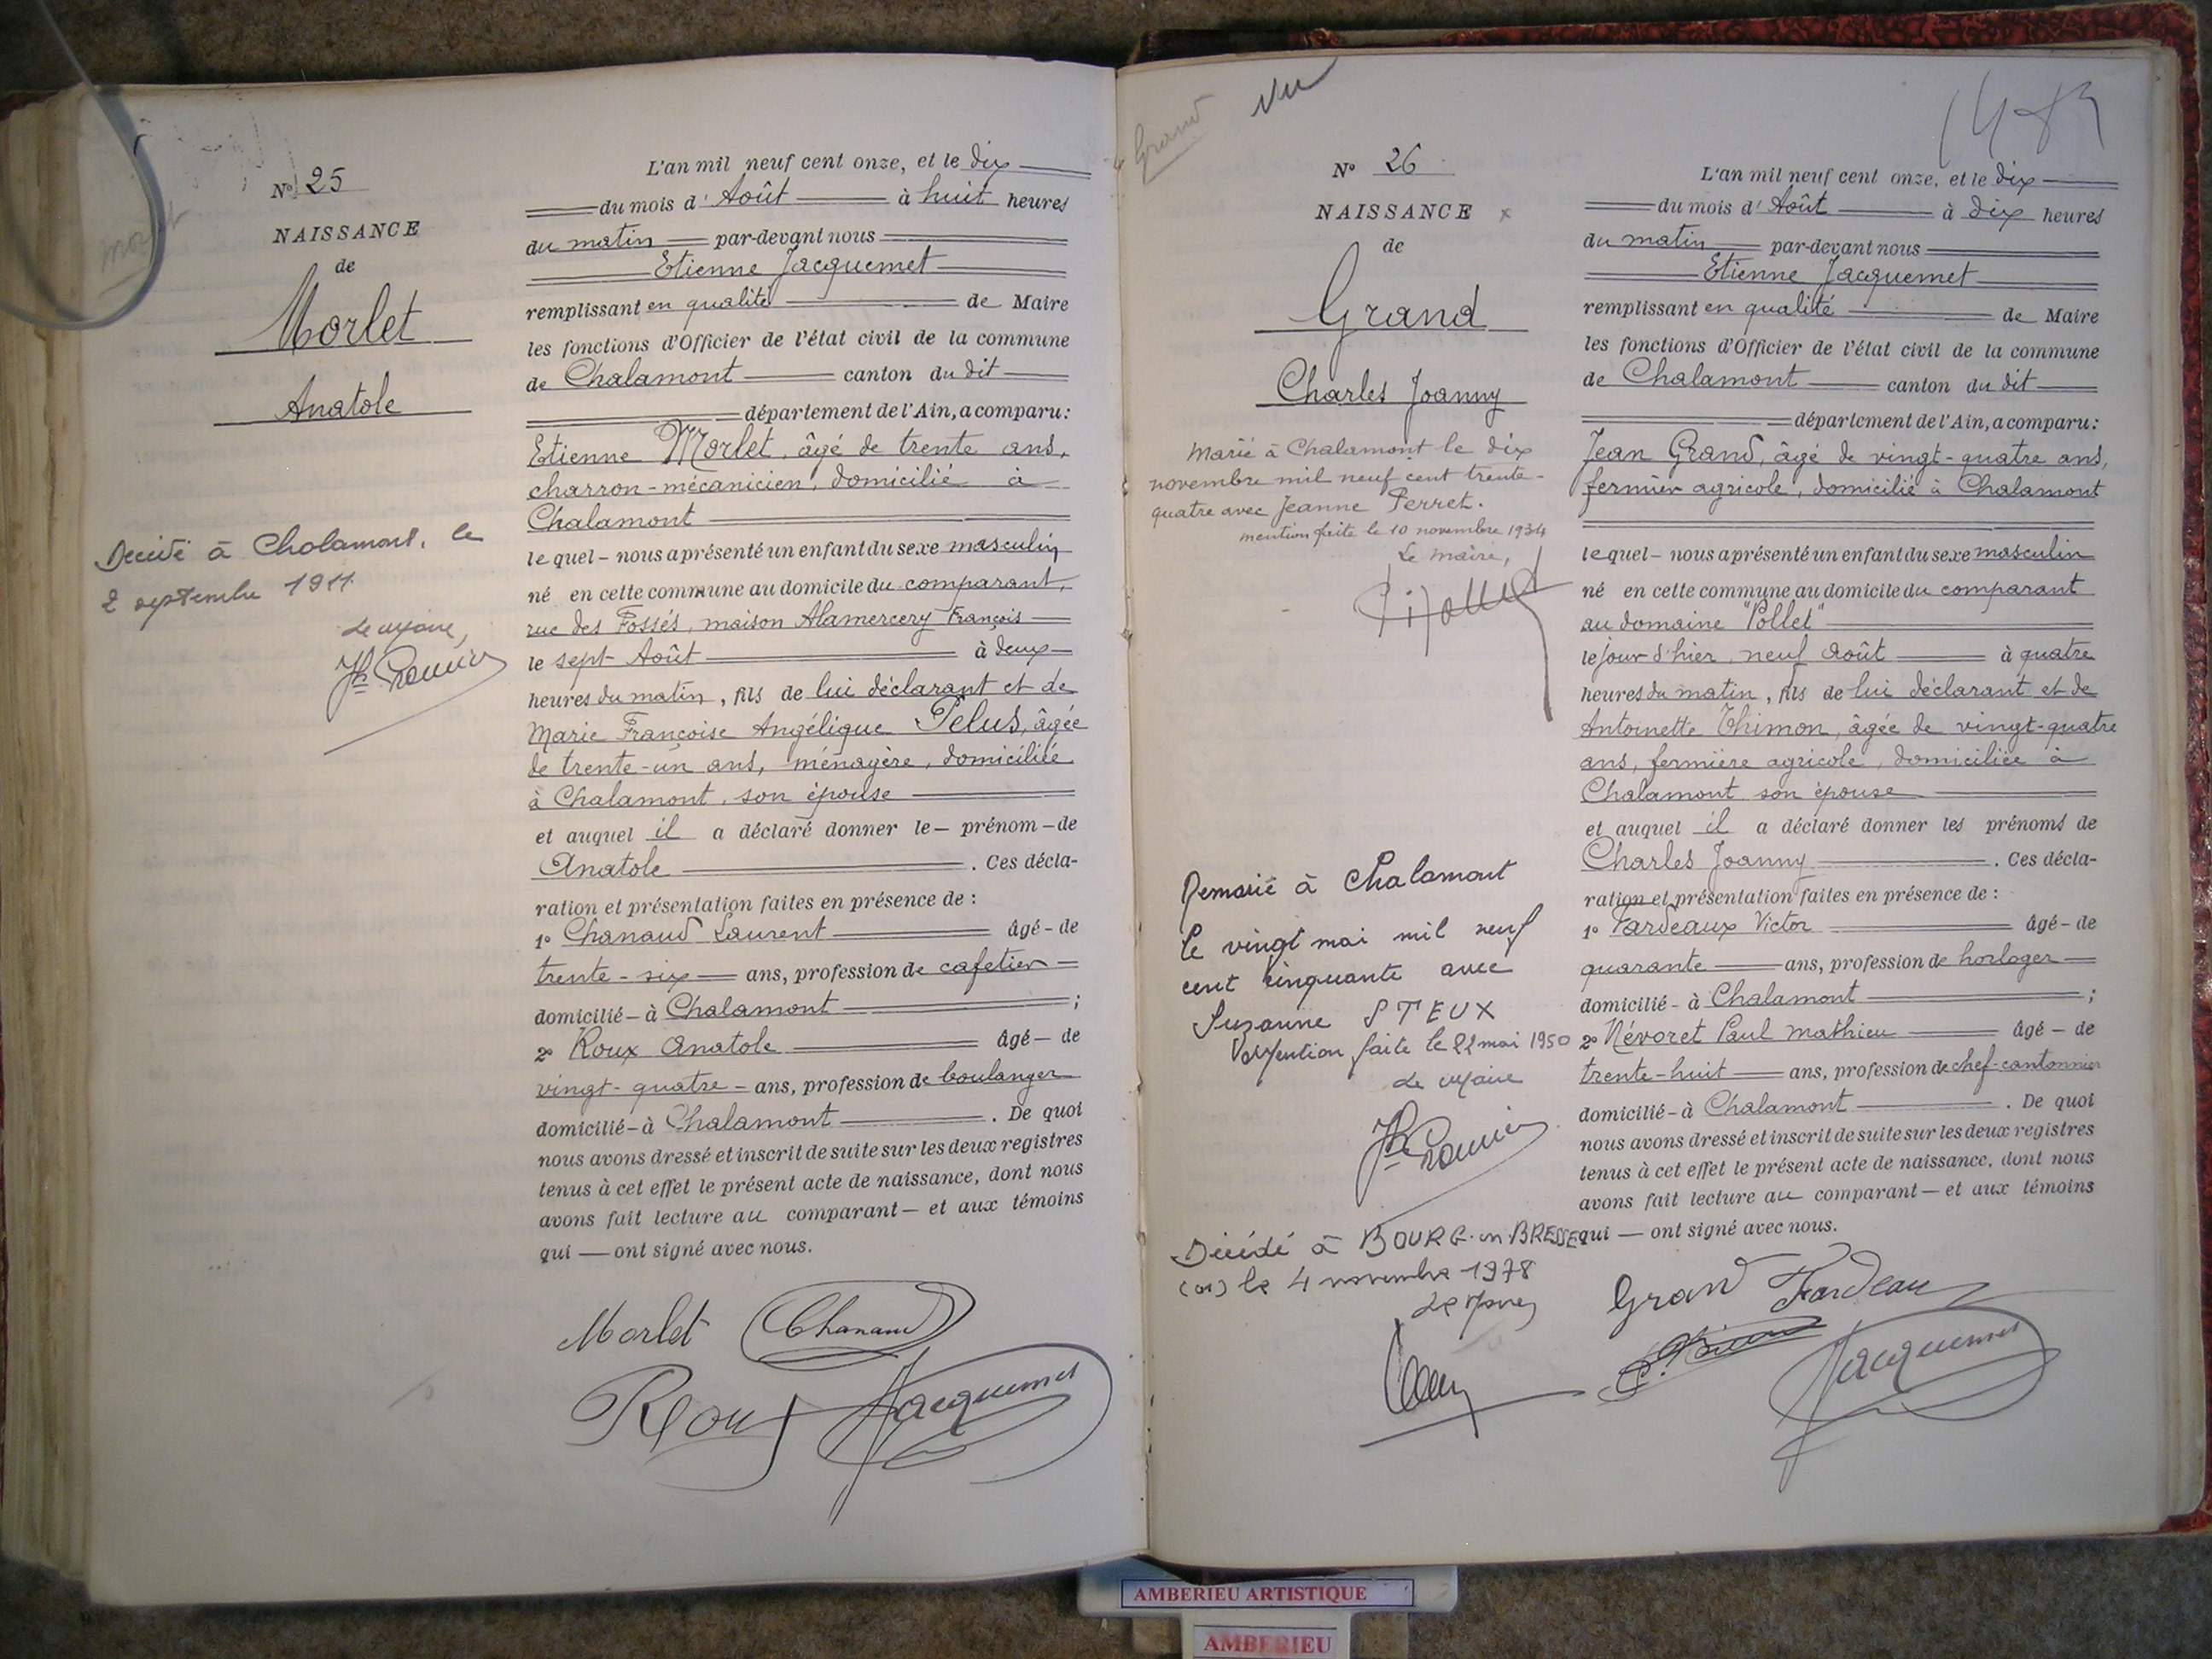 N° 25
NAISSANCE
de
Morlet
Anatole
Décédé à Chalamont, le
2 septembre 1911
Le Maire,
L'an mil neuf cent onze, et le dix
du mois d'Août à huit heures
du matin par-devant nous
Etienne Jacquemet
remplissant en qualité de Maire
les fonctions d'Officier de l'état civil de la commune
de Chalamont canton du dit
département de l'Ain, a comparu:
Etienne Morlet, âgé de trente ans,
charron-mécanicien, domicilié à
Chalamont
lequel - nous a présenté un enfant du sexe masculin
né en cette commune au domicile du comparant,
rue des Fossés, maison Alamercery François
le sept Août à deux
heures du matin, fils de lui déclarant et de
Marie Françoise Angélique Pelus, âgée
de trente-un ans, ménagère, domiciliée
à Chalamont, son épouse
et auquel il a déclaré donner le - prénom - de
Anatole. Ces décla-
ration et présentation faites en présence de :
1° Chanaud Laurent âgé - de
trente-six ans, profession de cafetier
domicilié - à Chalamont ;
2° Roux Anatole âgé - de
vingt-quatre - ans, profession de boulanger
domicilié - à Chalamont. De quoi
nous avons dressé et inscrit de suite sur les deux registres
tenus à cet effet le présent acte de naissance, dont nous
avons fait lecture au comparant - et aux témoins
qui — ont signé avec nous.
Morlet Chanaud
Roux Jacquemet
Grand
Vu
N° 26
NAISSANCE
de
Grand
Charles Joanny
Marié à Chalamont le dix
novembre mil neuf cent trente-
quatre avec Jeanne Perret.
mention faite le 10 novembre 1934
Le maire,
Remarié à Chalamont
le vingt mai mil neuf
cent cinquante avec
Suzanne STEUX
Mention faite le 22 mai 1950
Le Maire
Décédé à BOURG-en-BRESSE
(01) le 4 novembre 1978
Le Maire
L'an mil neuf cent onze, et le dix
du mois d'Août à dix heures
du matin par-devant nous
Etienne Jacquemet
remplissant en qualité de Maire
les fonctions d'Officier de l'état civil de la commune
de Chalamont canton du dit
département de l'Ain, a comparu:
Jean Grand, âgé de vingt-quatre ans,
fermier agricole, domicilié à Chalamont
lequel - nous a présenté un enfant du sexe masculin
né en cette commune au domicile du comparant
au domaine "Pollet"
le jour d'hier, neuf août à quatre
heures du matin, fils de lui déclarant et de
Antoinette Thimon, âgée de vingt-quatre
ans, fermière agricole, domiciliée à
Chalamont son épouse
et auquel il a déclaré donner les prénoms de
Charles Joanny. Ces décla-
ration et présentation faites en présence de :
1° Fardeaux Victor âgé - de
quarante ans, profession de horloger
domicilié - à Chalamont ;
2° Névoret Paul Mathieu âgé - de
trente-huit ans, profession de chef-cantonnier
domicilié - à Chalamont. De quoi
nous avons dressé et inscrit de suite sur les deux registres
tenus à cet effet le présent acte de naissance, dont nous
avons fait lecture au comparant - et aux témoins
qui — ont signé avec nous.
Grand Fardeau
Jacquemet
AMBERIEU ARTISTIQUE
AMBERIEU